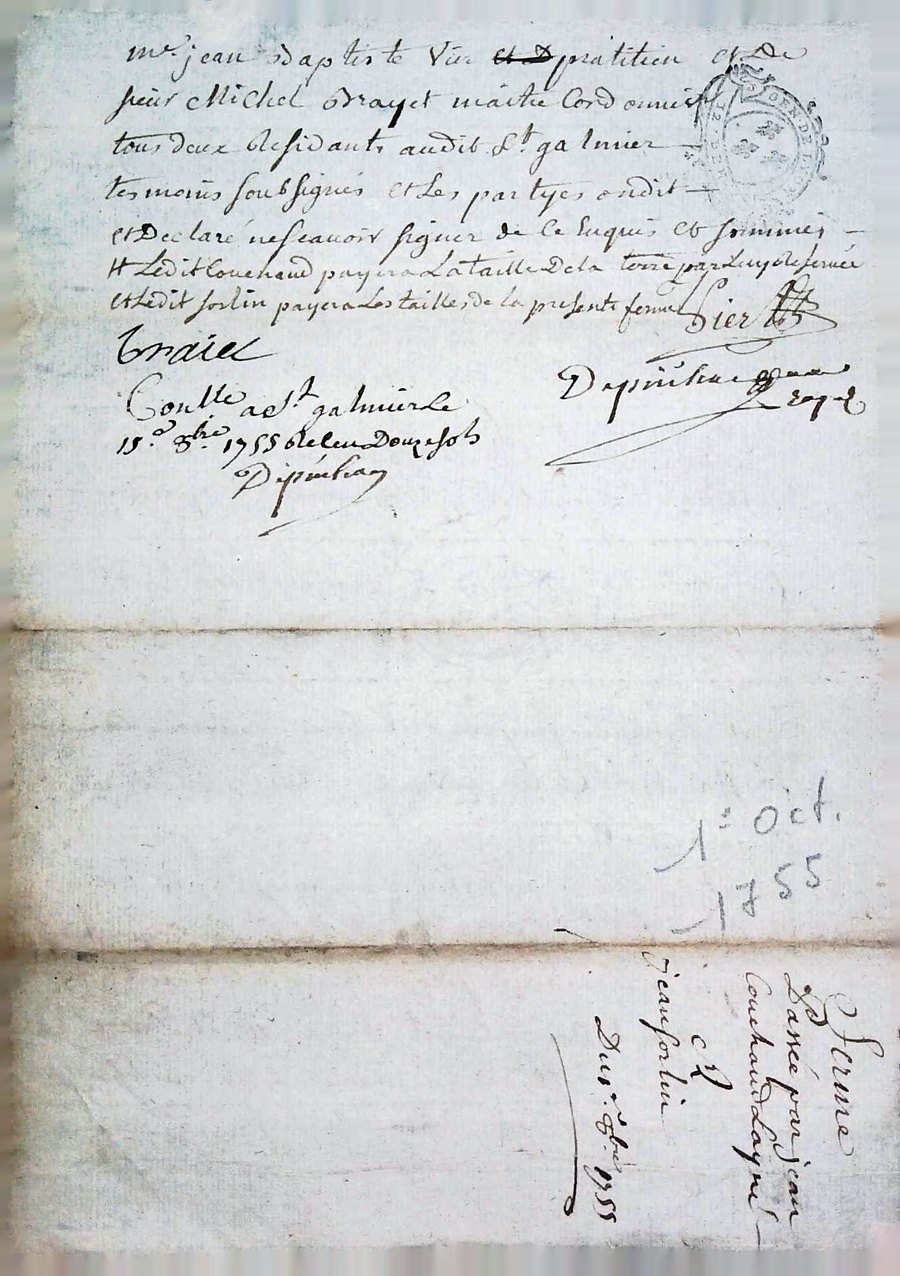 me. jean Baptiste Vier et D pratitien et De
sieur Michel Brayet maitre Cordonnier
tous deux Residants audit St. galmier
tesmoins soubsignés et Les partyes ondit
et Declaré ne scavoir signer de Ce Enquis et sommés
Ledit Couchaud payera La taille De la terre par Luy Reservée
et Ledit sorlin payera Les tailles de la presente ferme
Contlle a St. galmier Le
15e. 8bre. 1755 Receu Douze sols
1er Oct.
1755
ferme
Passée par jean
Couchaud Layné
et
jean sorlin
Du 1er. 8bre 1755